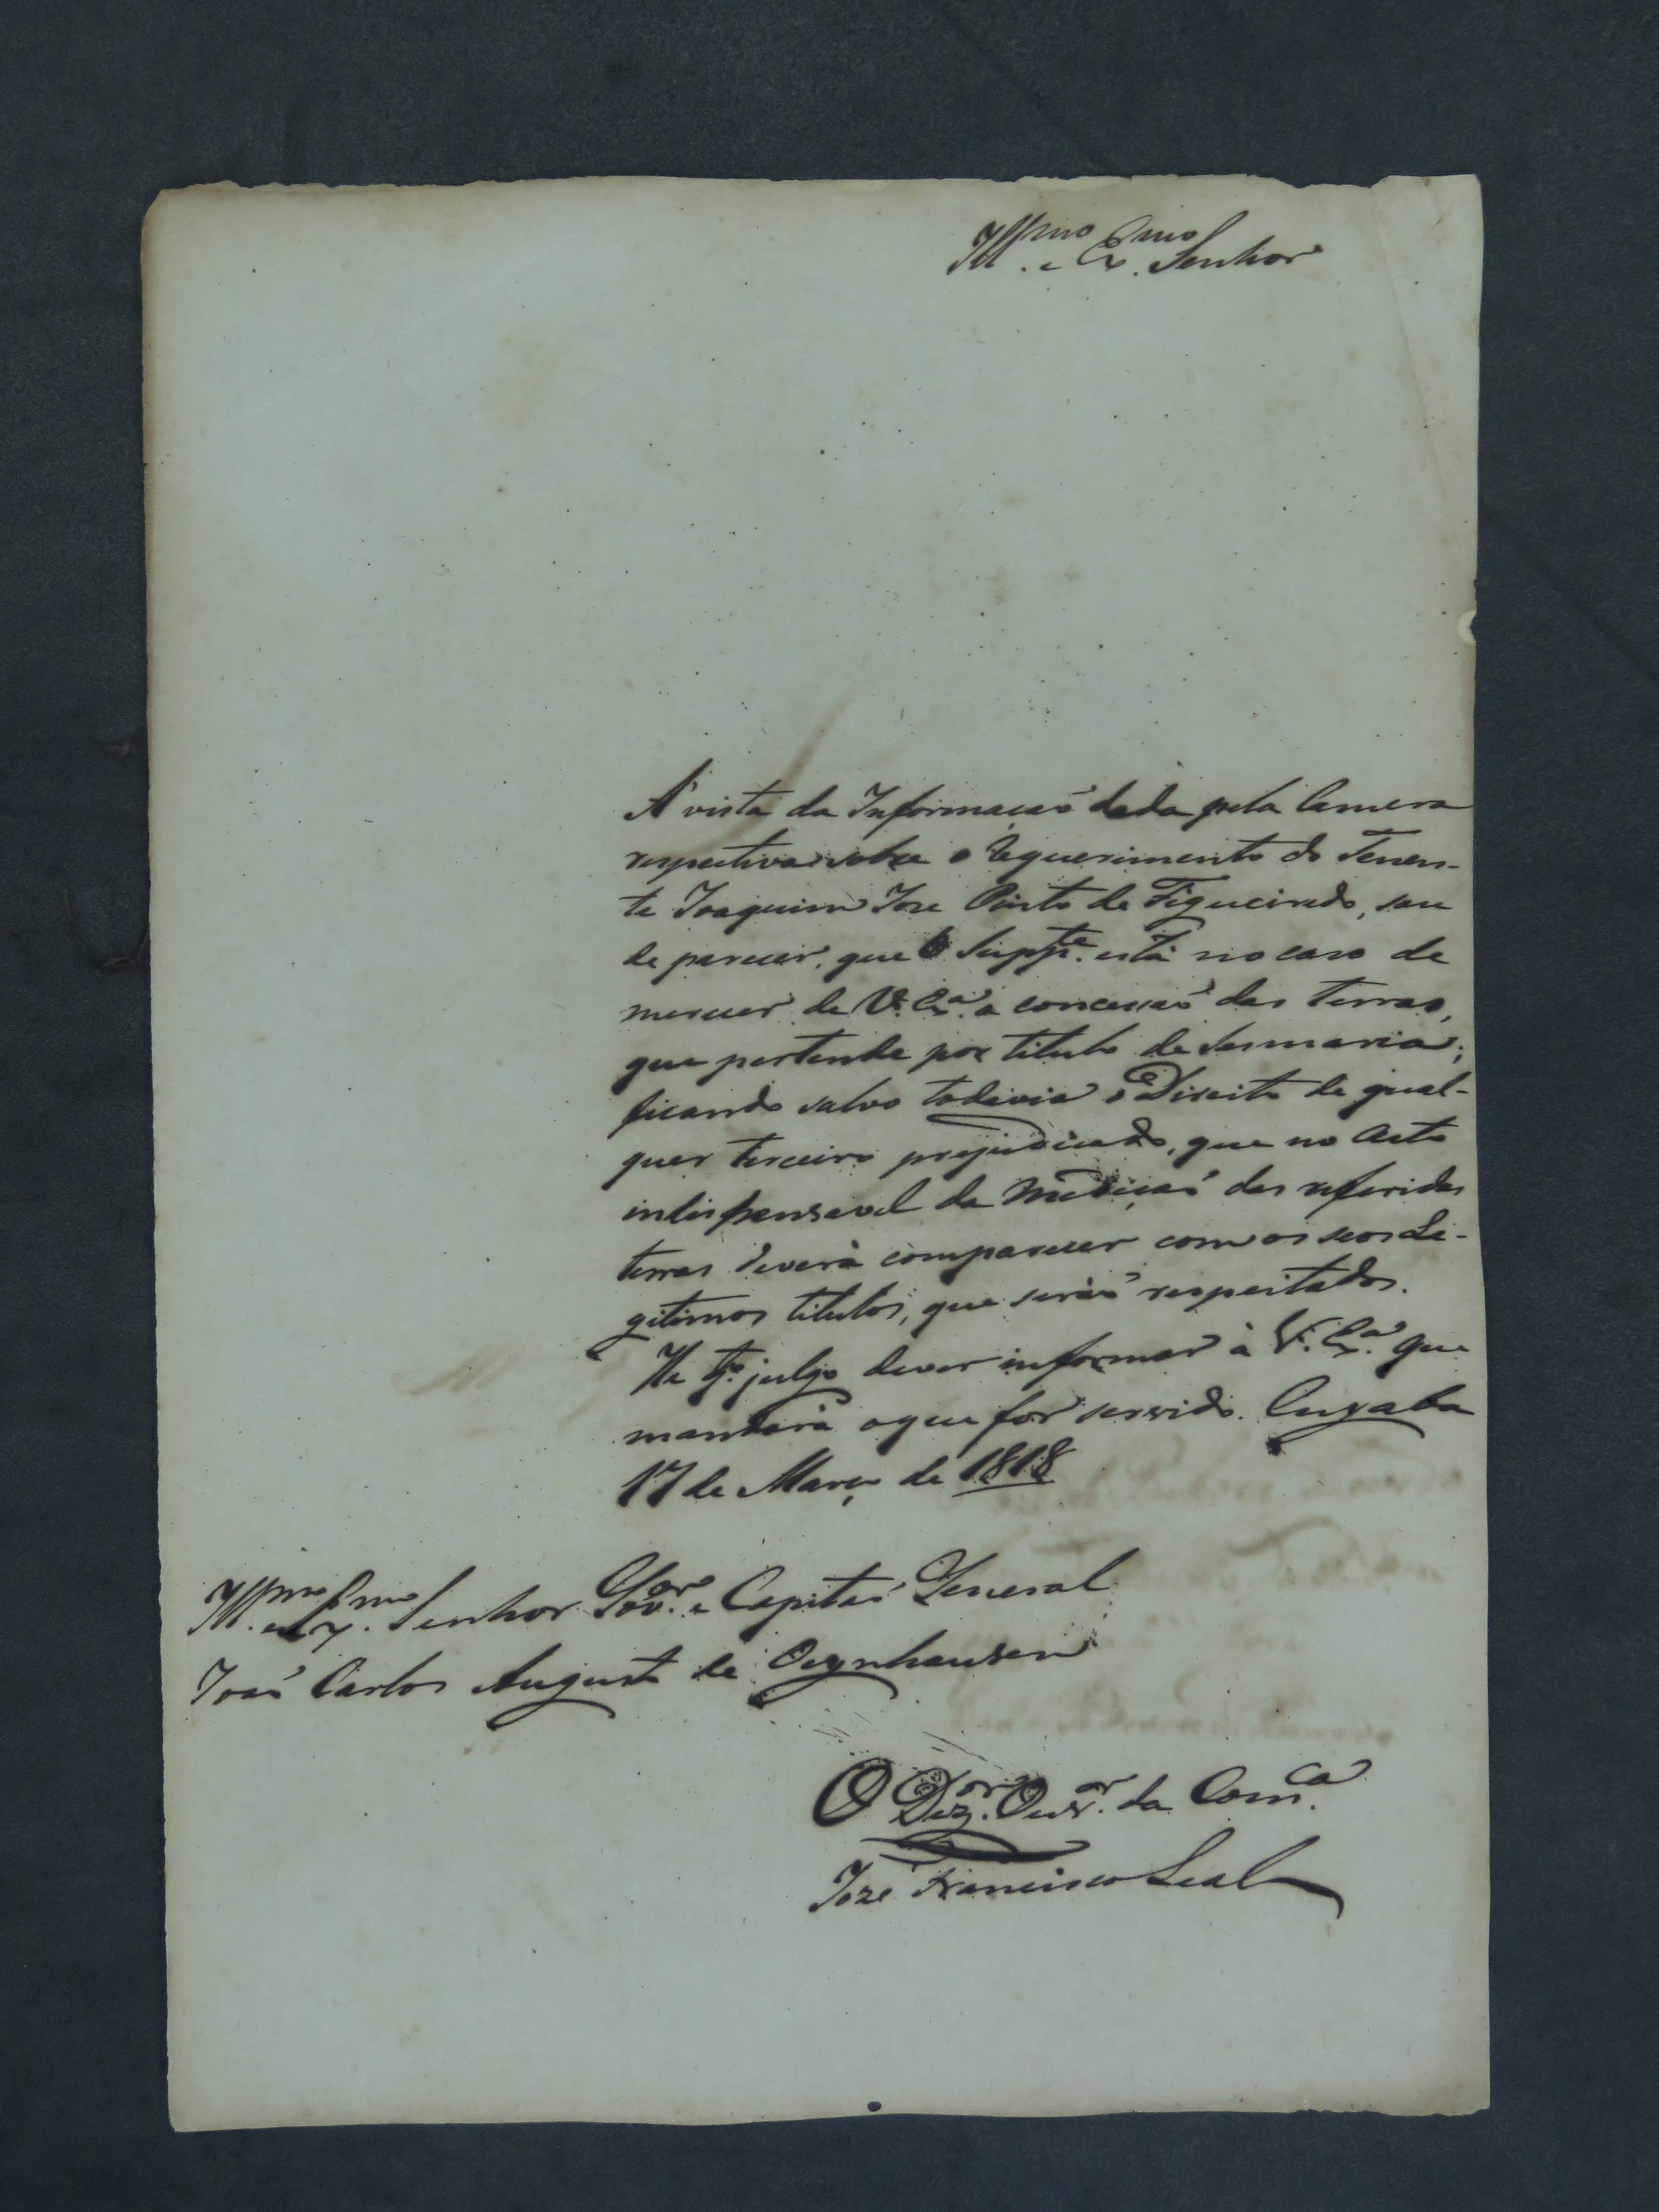 Ill.mo e Ex.mo Senhor
A' vista da Informaçaõ dada pela Camera
respectiva sobre o Requerimento do Tenen-
te Joaquim Joze Pinto de Figueiredo, sou
de parecer, que o Supp.te está no caso de
merecer de V. Ex.a a concessaõ das terras,
que pertende por titulo de Sesmaria;
ficando salvo todavia o Direito de qual-
quer terceiro prejudicado, que no Acto
indispensavel da Mediçaõ das referidas
terras deverá comparecer com os seos Le-
gitimos titulos, que seraõ respeitados.
He q.to julgo dever informar à V. Ex.a que
mandará o que for servido. Cuyaba
17 de Março de 1818
Ill.mo e Ex.mo Senhor Gov.or e Capitaõ General
Joaõ Carlos Augusto de Oeynhausen
O Dez.or Ouv.or da Com.ca
Joze Francisco Leal